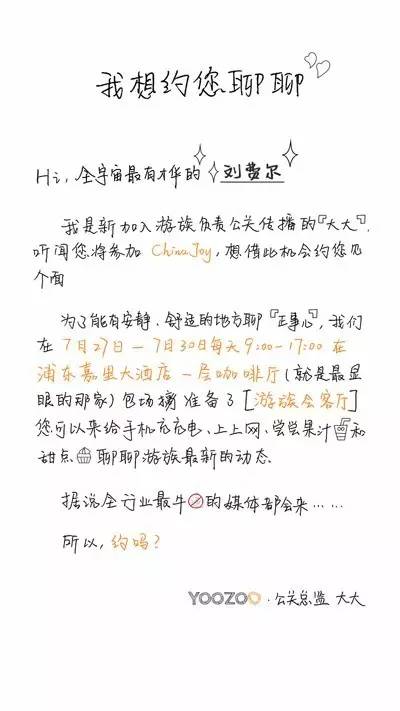 我想约您聊聊
Hi,全宇宙最有才华的 刘费尔
我是新加入游族负责公关传播的『大大』,
听闻您将参加 ChinaJoy,想借此机会约您见
个面
为了能有安静、舒适的地方聊『正事心』,我们
在 7月27日-7月30日每天9:00-17:00 在
浦东嘉里大酒店一层咖啡厅(就是最显
眼的那家)包场 准备了[游族会客厅]
您可以来给手机充充电、上上网、尝尝果汁和
甜点 聊聊游族最新的动态.
据说全行业最牛的媒体都会来……
所以,约吗?
YOOZOO·公关总监 大大